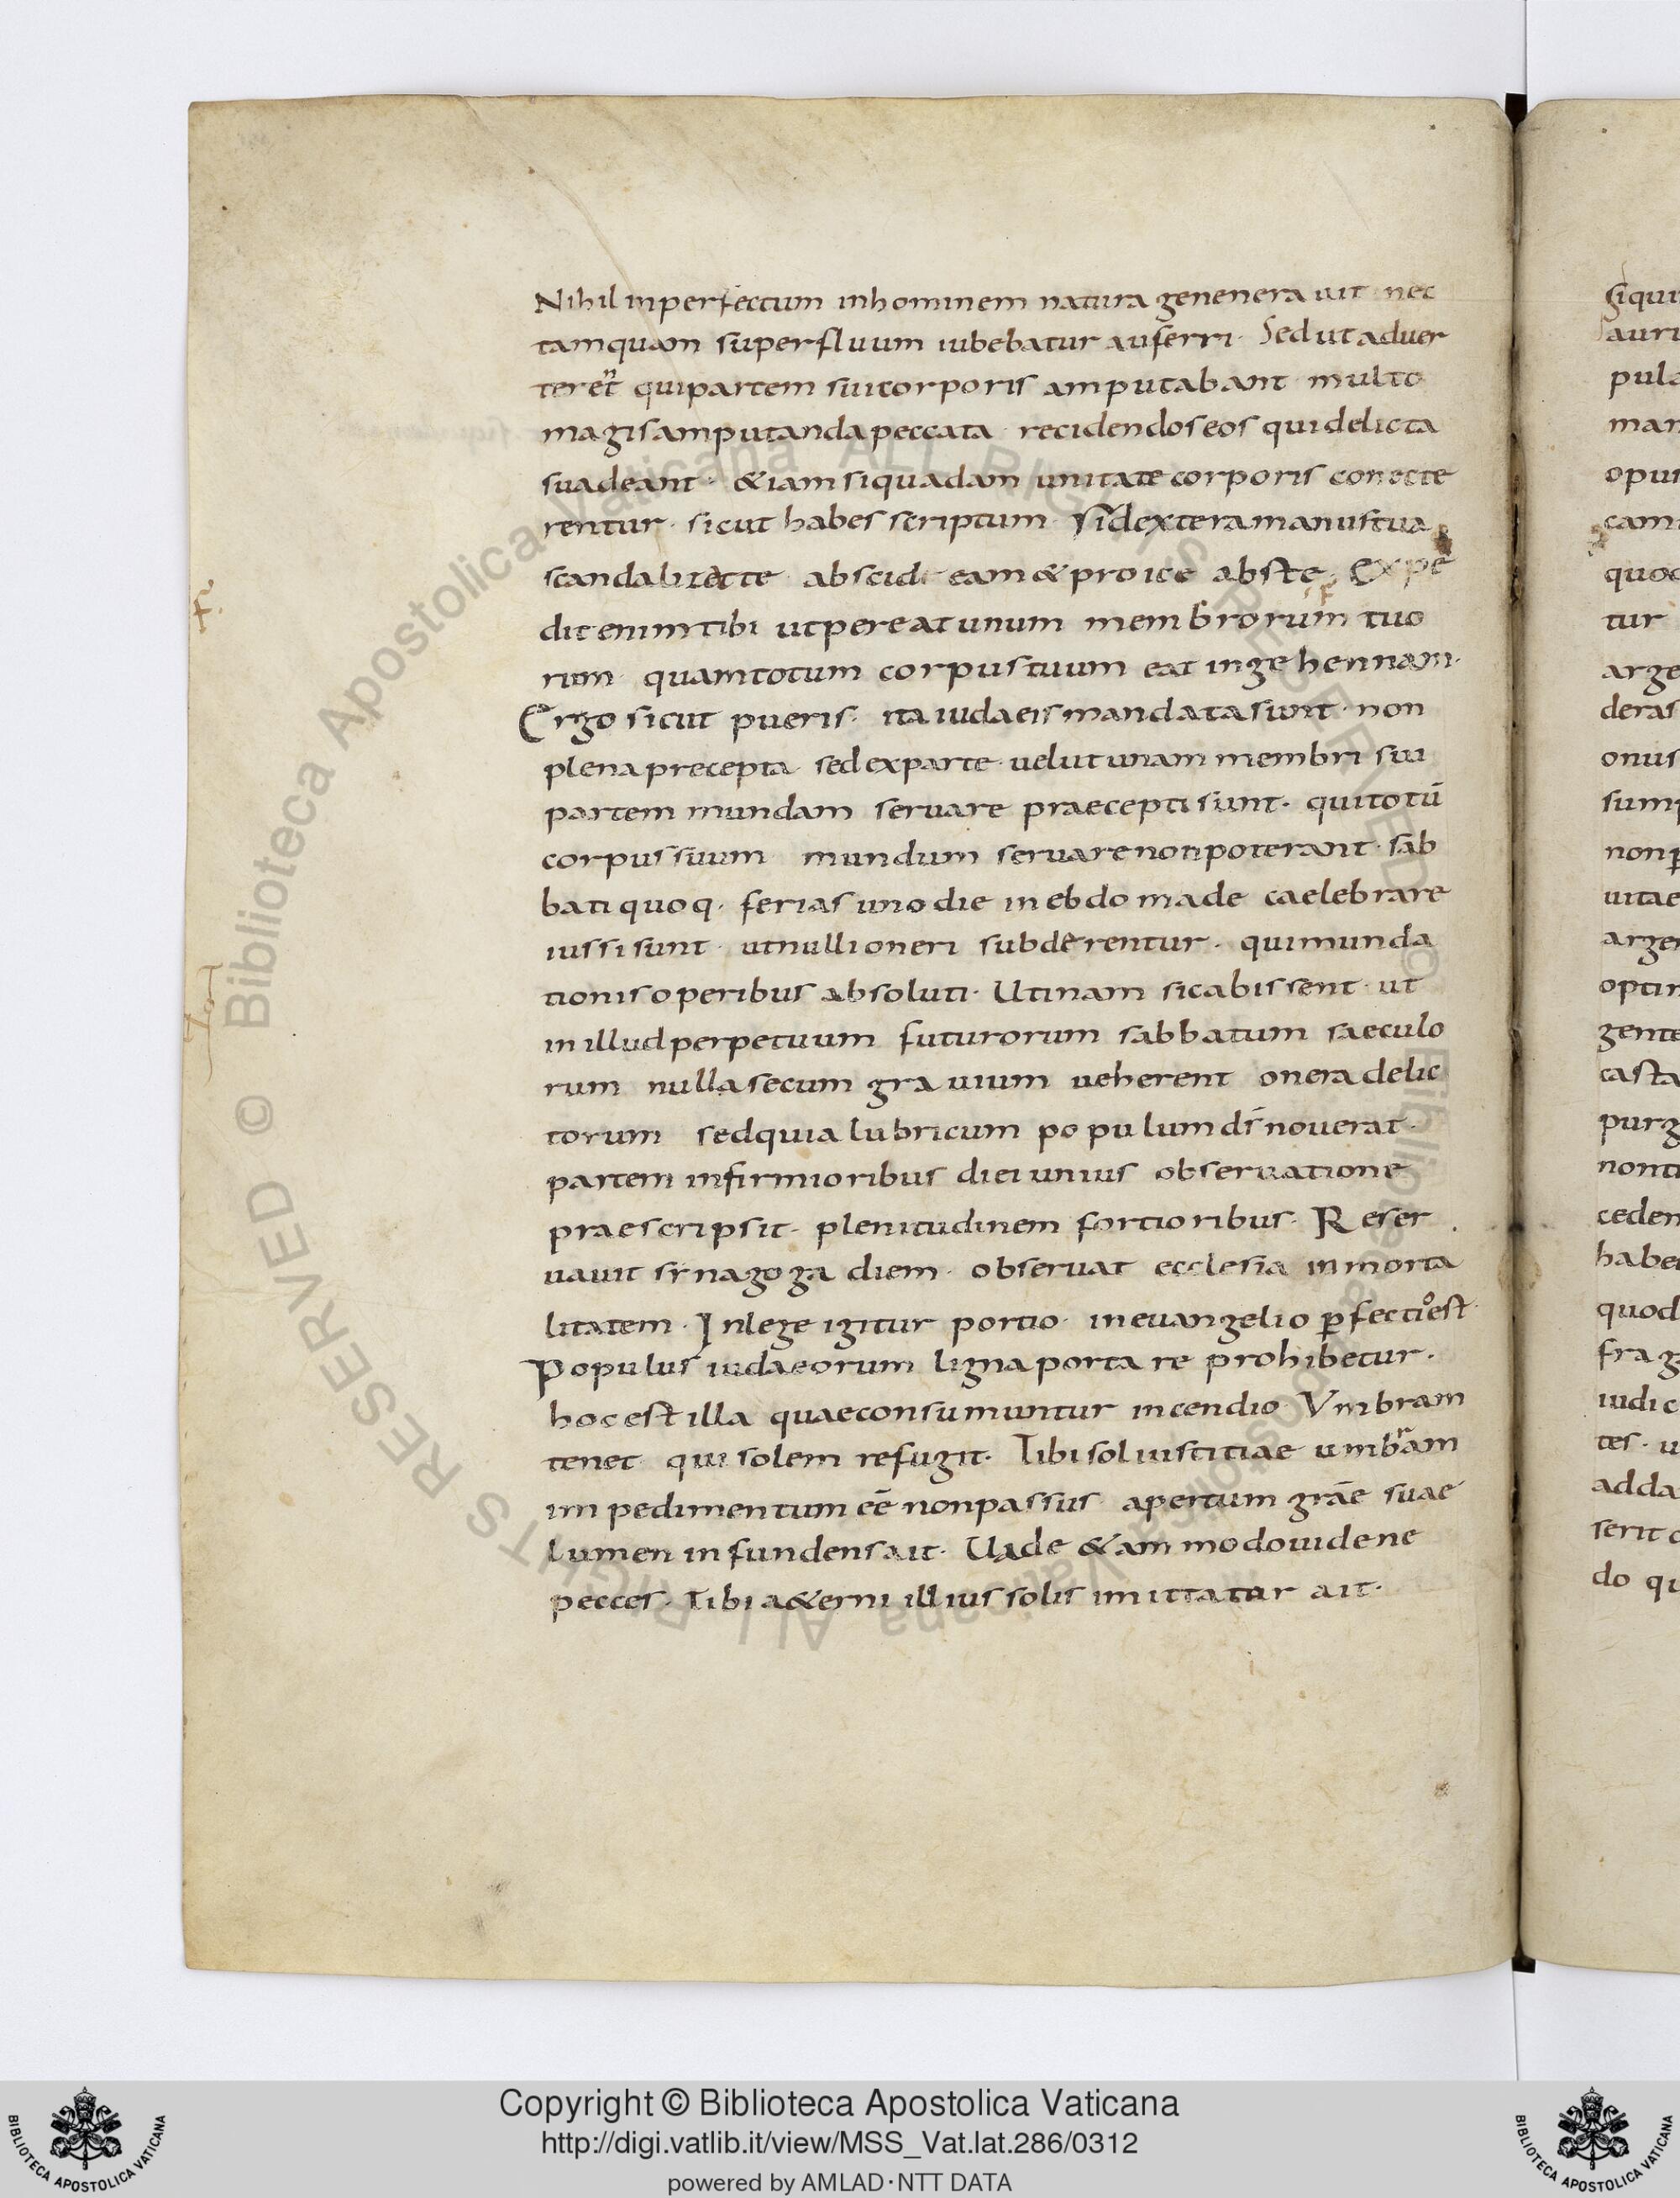 Nihil inperfectum inhominem natura genenera uit nec
tamquam superfluum iubebatur auferri· Sed ut aduer
terent quipartem sui corporis amputabant multo
magis amputanda peccata· recidendos eos qui delicta
suadeant· &iam siquadam unitate corporis conecte
rentur· sicut habes scriptum· Sidextera manus tua
scandalizet te· abscide eam & proice abs te· Expe
dit enim tibi ut pereat unum membrorum tuo
rum· quam totum corpus tuum eat in gehennam·
Ergo sicut pueris· ita iudaeis mandata sunt· non
plena precepta sed ex parte· uelut unam membri sui
partem mundam seruare praecepti sunt· qui totū
corpus suum mundum seruare non poterant· sab
bati quoq· ferias uno die in ebdomade caelebrare
iussi sunt· ut nulli oneri subderentur· qui munda
tionis operibus absoluti· Utinam sic abissent· ut
in illud perpetuum futurorum sabbatum saeculo
rum nulla secum grauium ueherent onera delic
torum sed quia lubricum populum dī nouerat·
partem infirmioribus diei unius obseruatione
praescripsit· plenitudinem fortioribus· Reser
uauit synagoga diem· obseruat ecclesia inmorta
litatem· In lege igitur portio· in euangelio ꝑfectio est·
Populus iudaeorum ligna portare prohibetur·
hoc est illa quae consumuntur incendio· Vmbram
tenet· qui solem refugit· Tibi sol iustitiae umbram
impedimentum eē non passus· apertum grāe suae
lumen infundens ait· Uade & am modo uide ne
pecces· Tibi a&erni illius solis imitatur ait·
siqui
auru
pula
man
opus
cam
quod
tur
arge
deras
onus
sump
non p
uitae
argen
optin
gente
casta
purg
nonti
ceden
habe
quod
frag
iudic
tes· u
adda
serit
do qu
© Biblioteca Apostolica Vaticana ALL RIGHTS RESERVED
© Biblioteca Apostolica Vaticana ALL RIGHTS RESERVED
Copyright © Biblioteca Apostolica Vaticana
http://digi.vatlib.it/view/MSS_Vat.lat.286/0312
powered by AMLAD·NTT DATA
BIBLIOTECA APOSTOLICA VATICANA
BIBLIOTECA APOSTOLICA VATICANA